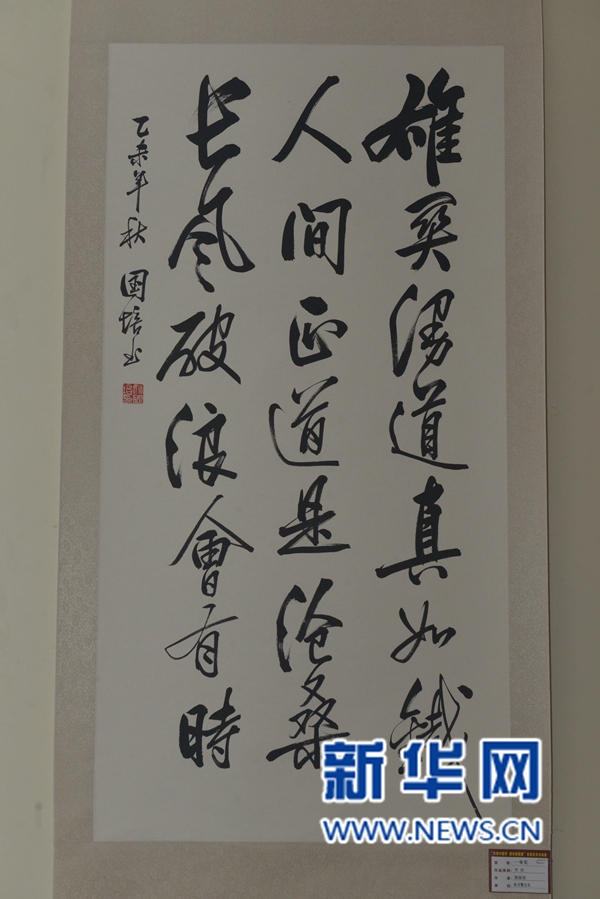 雄关漫道真如鐵
人间正道是沧桑
长风破浪會有時
乙未年秋 國培书
新华网
WWW.NEWS.CN